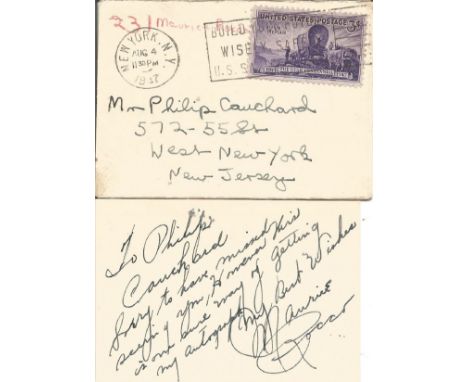 221 Maurice
NEW YORK, N.Y.
AUG 4
1130 PM
BUILD
WISE
U.S. S
UNITED STATES POSTAGE
3¢
Mr Philip Cauchard
572-55 St
West New York
New Jersey
To Philip
Cauchard
Sorry to have missed
seeing you, However this
is one sure way of getting
my autograph
My Best Wishes
Maurice
Rocco